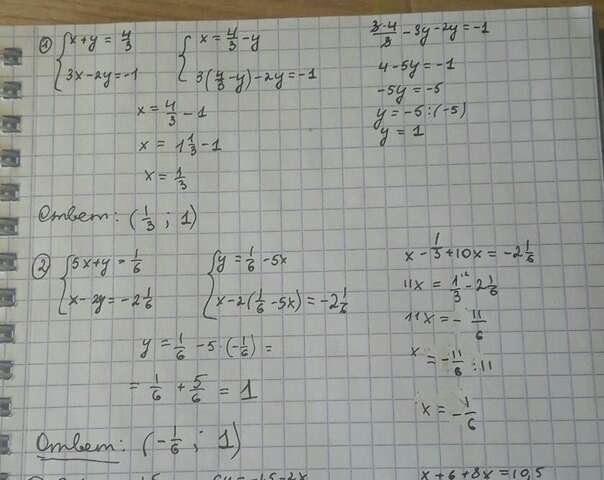 ① { x+y = 4/3   { x = 4/3 - y
{ 3x-2y=-1   { 3(4/3-y)-2y=-1
3·4/3 - 3y-2y=-1
4-5y=-1
-5y=-5
y=-5:(-5)
y=1
x = 4/3 - 1
x = 1 1/3 - 1
x = 1/3
Ответ: (1/3 ; 1)
② { 5x+y = 1/6   { y = 1/6 - 5x
{ x-2y = -2 1/6   { x-2(1/6-5x) = -2 1/6
x - 1/3 + 10x = -2 1/6
11x = 1/3 - 2 1/6
11x = - 11/6
x = -11/6 : 11
x = - 1/6
y = 1/6 - 5·(-1/6) =
= 1/6 + 5/6 = 1
Ответ: (-1/6 ; 1)
x+6+8x=10,5